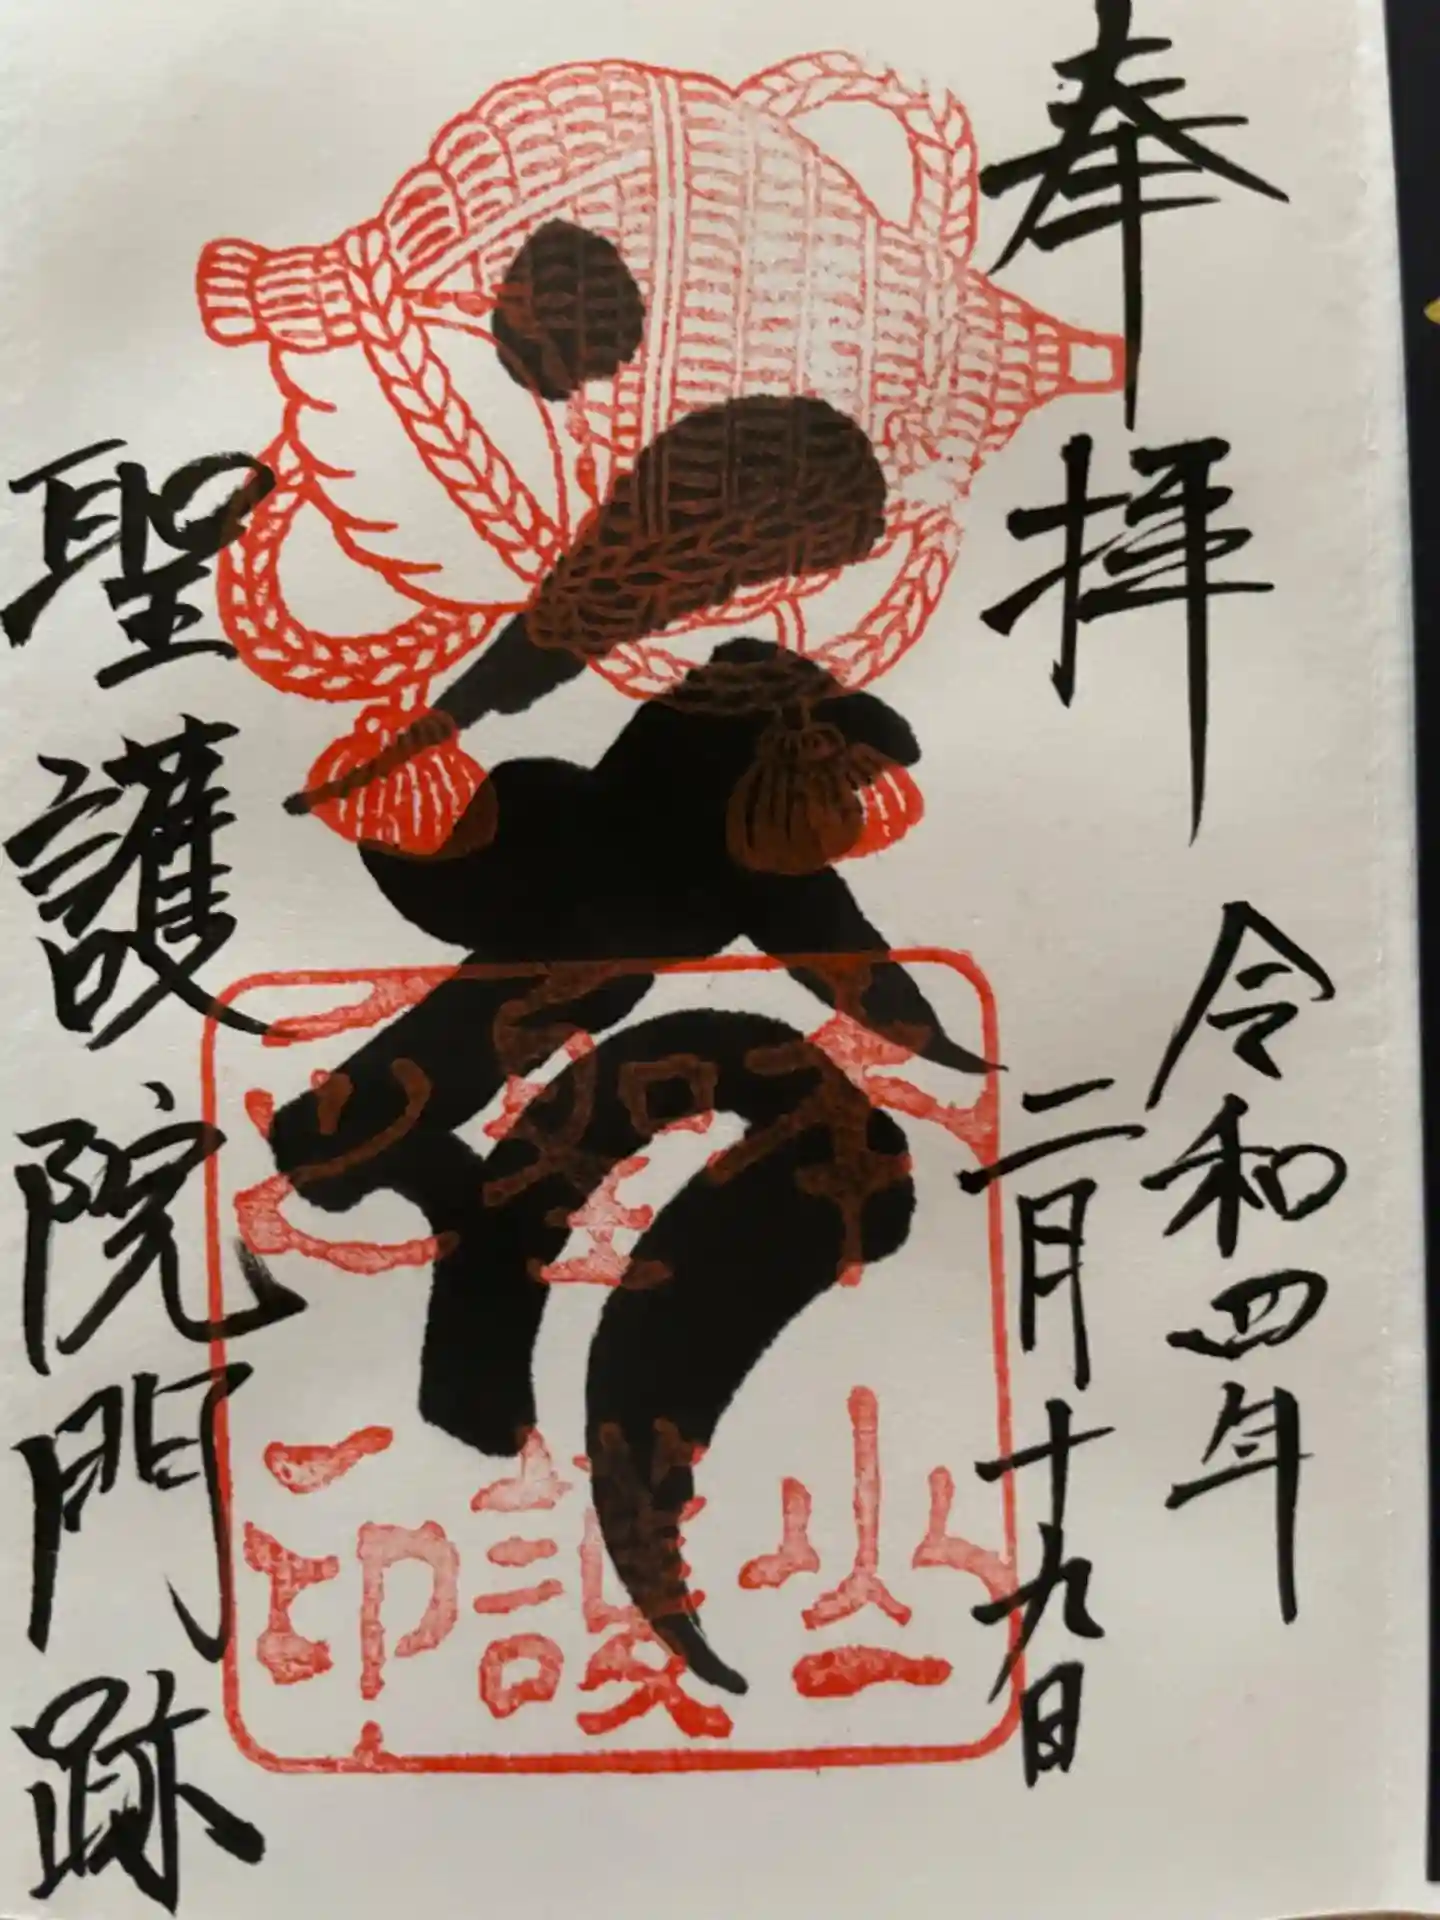 奉拝
令和四年
二月十九日
聖護
聖護院門跡